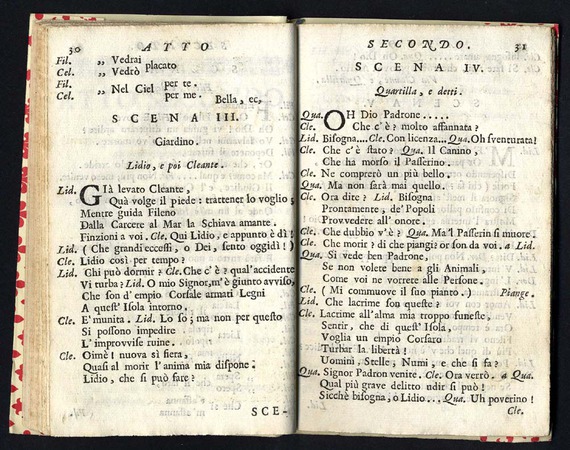 30 ATTO
Fil. „ Vedrai placato
Cel. „ Vedrò
Fil. „ Nel Ciel per te.
Cel. per me.
Bella, ec,
SCENA III.
Giardino.
Lidio, e poi Cleante.
Lid. GIà levato Cleante,
Quà volge il piede: trattener lo voglio;
Mentre guida Fileno
Dalla Carcere al Mar la Schiava amante.
Finzioni a voi. Cle. Qui Lidio, e appunto è dì!
Lid. ( Che grandi eccessi, o Dei, sento oggidì! )
Cle. Lidio così per tempo?
Lid. Chi può dormir? Cle. Che c'è? qual'accidente
Vi turba? Lid. O mio Signor, m'è giunto avviso,
Che son d'empio Corsale armati Legni
A quest' Isola intorno.
Cle. E' munita. Lid. Lo so; ma non per questo
Si possono impedire
L'improvvise ruine.
Cle. Oimè! nuova sì fiera,
Quasi al morir l'anima mia dispone.
Lidio, che si può fare?
SCE-
SECONDO. 31
SCENA IV.
Quartilla, e detti.
Qua. OH Dio Padrone.....
Cle. Che c'è? molto affannata?
Lid. Bisogna.... Cle. Con licenza... Qua. Oh sventurata!
Cle. Che c'è stato? Qua. Il Canino,
Che ha morso il Passerino.
Cle. Ne comprerò un più bello.
Qua. Ma non sarà mai quello.
Cle. Ora dite? Lid. Bisogna
Prontamente, de' Popoli
Provvedere all' onore.
Cle. Che dubbio v'è? Qua. Ma 'l Passerin si muore.
Cle. Che morir? di che piangi? or son da voi. a Lid.
Qua. Si vede ben Padrone,
Se non volete bene a gli Animali,
Come voi ne vorrete alle Persone.
Cle. ( Mi commuove il suo pianto. ) Piange.
Lid. Che lacrime son queste?
Cle. Lacrime all'alma mia troppo funeste,
Sentir, che di quest' Isola,
Voglia un empio Corsaro
Turbar la libertà!
Uomini, Stelle, Numi, e che si fa?
Qua. Signor Padron venite. Cle. Ora verrò. a Qua.
Qual più grave delitto udir si può!
Sicchè bisogna, o Lidio... Qua. Uh poverino!
Cle.